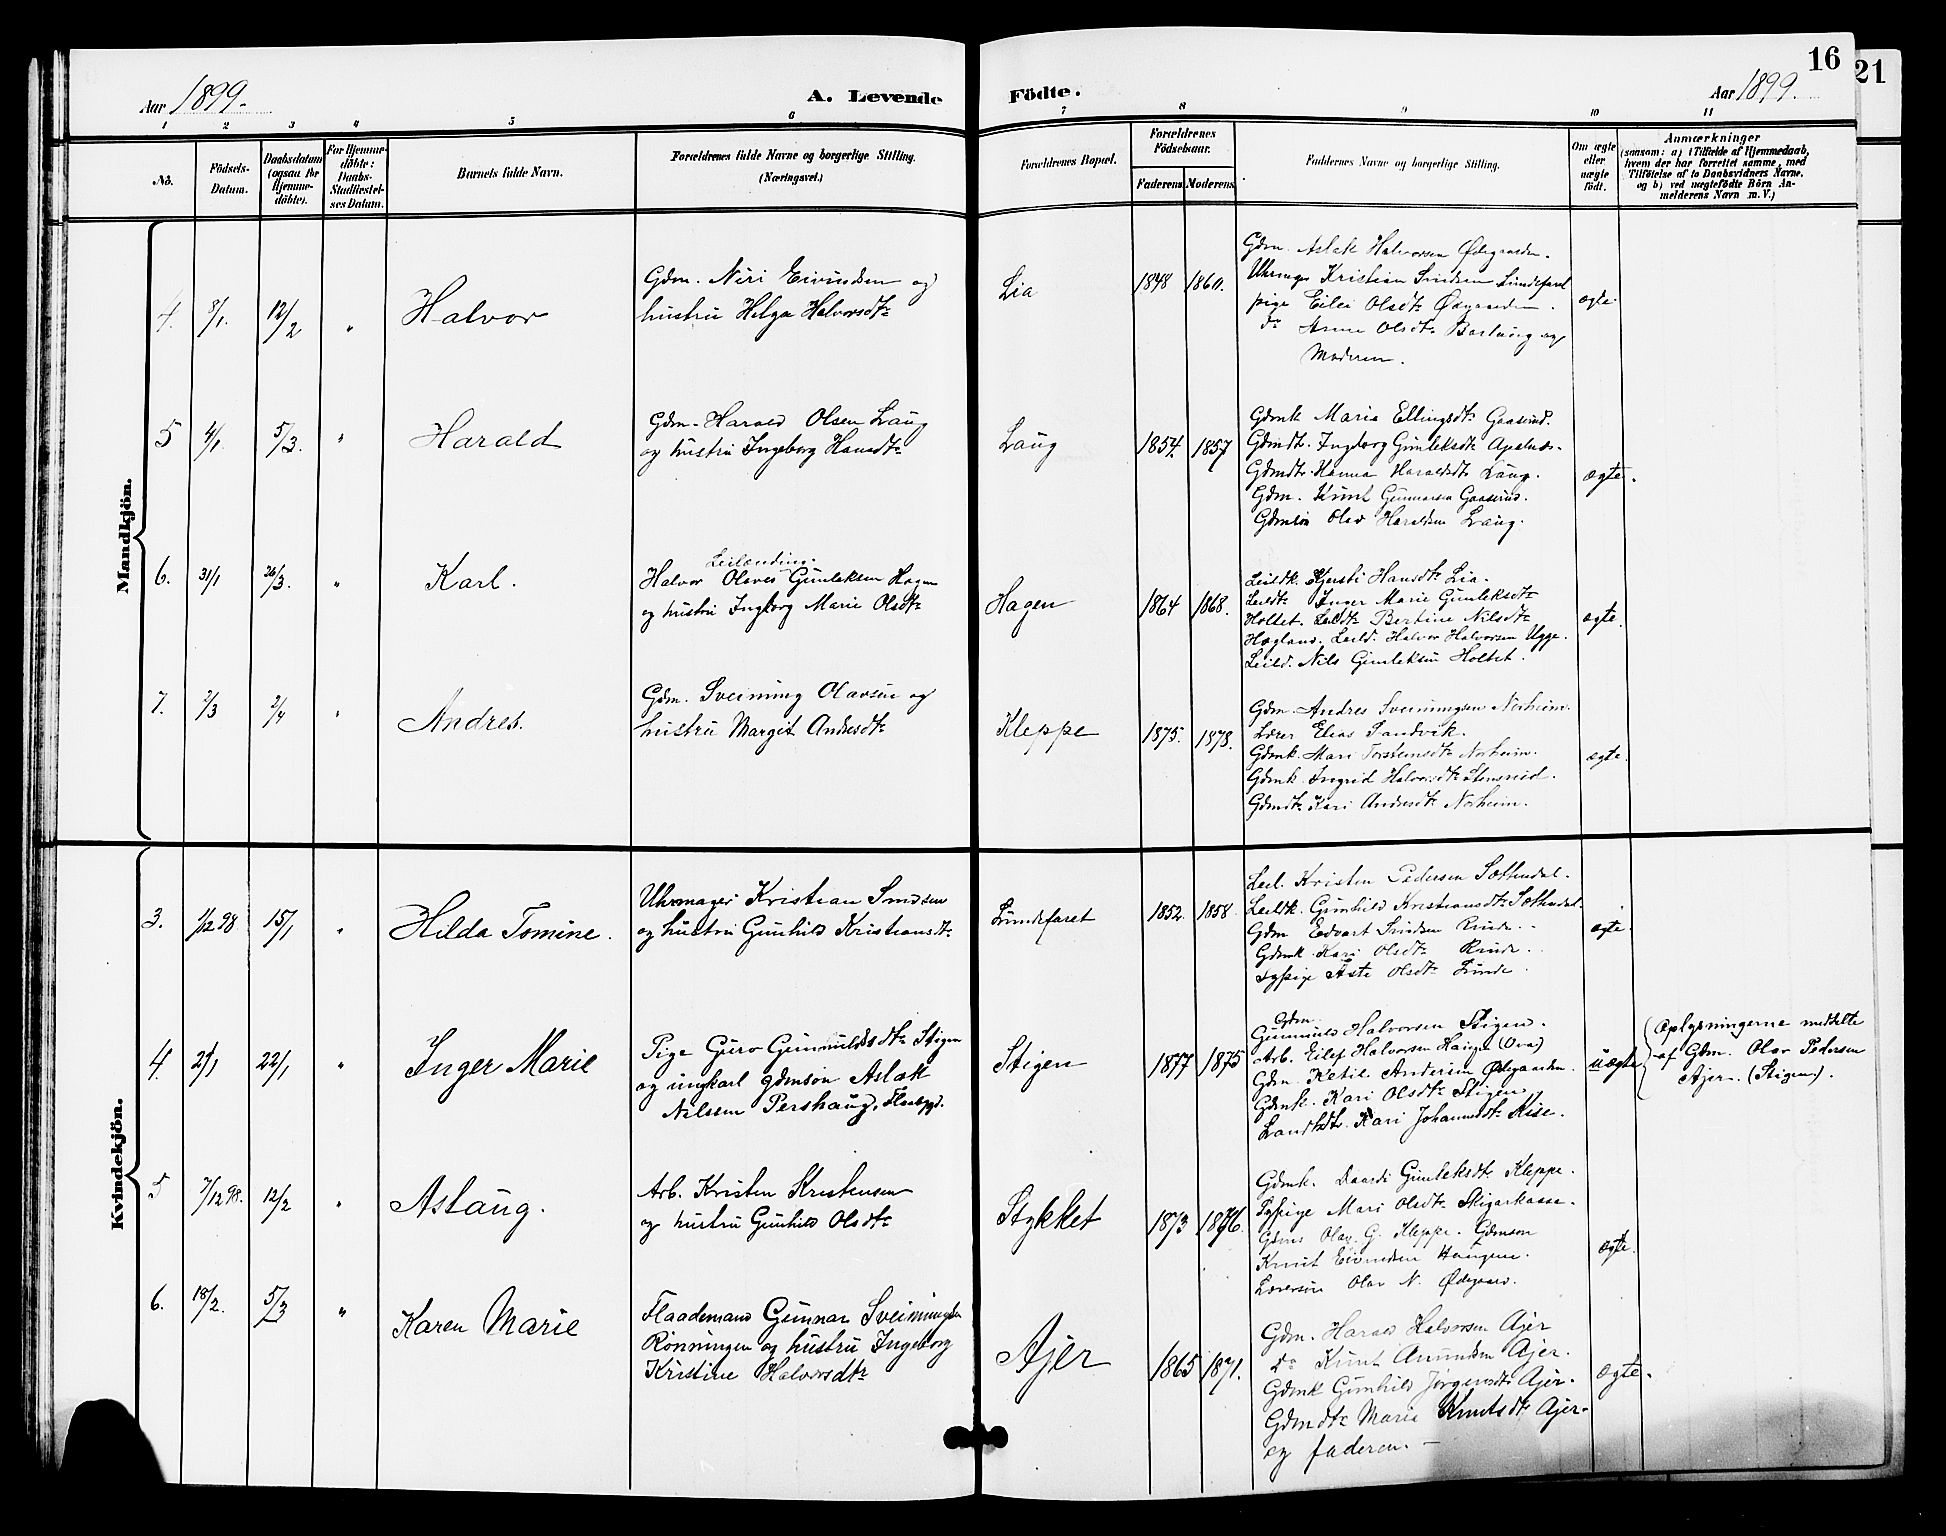 Aar 1899.
A. Levende
Födte.
Aar 1899.
16
21
1 2 3 4 5 6 7 8 9 10 11
No.
Födsels-
Datum.
Daabsdatum
(ogsaa for
Hjemme-
döbte).
For Hjemme-
döbte:
Daabs-
Stadfæstel-
ses Datum.
Barnets fulde Navn.
Forældrenes fulde Navne og borgerlige Stilling.
(Næringsvei.)
Forældrenes Bopæl.
Forældrenes
Födselsaar.
Faderens
Moderens
Faddernes Navne og borgerlige Stilling.
Om ægte
eller
uægte
födt.
Anmærkninger
(saasom: a) i Tilfælde af Hjemmedaab,
hvem der har forrettet samme, med
Tilföielse af to Daabsvidners Navne,
og b) ved uægtefödte Börn An-
melderens Navn m. V.)
Mandkjön.
4. 3/1. 12/2 " Halvor
Gdm. Niri Eivindsen og
hustru Helga Halvorsdtr
Lia 1848 1860.
Gdm. Aslak Halvorsen Ødegaarden.
Uhrmager Kristian Smidsen Lundefaret
pige Eilei Olsdtr Ødegaarden.
do Anna Olsdtr og
Moderen.
ægte
5 4/1. 5/3. " Harald
Gdm. Harald Olsen Laug
og hustru Ingeborg Hansdtr
Laug 1854. 1857
Gdmk Maria Ellingsdtr Gaasrud.
Gdmdtr. Ingeborg Gunleksdtr
Gdmdtr. Hanna Haraldsdtr Laug.
Gdm. Knut Gunnarsen Gaasrud.
Gdmsön Olav Haraldsen Laug.
ægte.
6. 31/1 26/3. " Karl.
Leilænding.
Halvor Olaves Gunleksen Hagen
og hustru Ingborg Marie Olsdtr
Hagen 1864 1868.
Leildk. Kjersti Hansdtr Lia.
Leildtr Inger Marie Gunleksdtr
Holtet. Leildtr Bertine Nilsdtr
Hogland. Leild. Halvor Halvorsen Ugge.
Leild. Nils Gunleksen Holtet.
ægte.
7. 2/3 2/4 " Andres.
Gdm. Sveinung Olavsen og
hustru Margit Andresdtr
Kleppe 1875. 1878.
Gdm. Andres Sveinungsen Norheim.
Lærer Elias Sandvik.
Gdmk. Mari Torsteinsdtr Norheim.
Gdmk. Ingrid Halvorsdtr Stensrud.
Gdmdtr Kari Andresdtr Norheim.
ægte.
Kvindekjön.
3. 1/12 98 15/1 " Hilda Tomine.
Uhrmager Kristian Smidsen
og hustru Gunhild Kristiansdtr
Lundefaret 1852. 1858.
Leil. Kristen Pedersen Sættendal.
Leildk. Gunhild Kristiansdtr Sættendal.
Gdm Edvart Smidsen Rinde.
Gdmk. Kari Olsdtr Rinde.
Sypige Aste Olsdtr Lunde.
ægte.
4. 2/1 22/1 " Inger Marie
Pige Guro Gunnuldsdtr Stigen
og ungkarl gdmsön Aslak
Nilssen Pershaug, Flaabygd.
Stigen 1877 1875
Gdm.
Gunnuld Halvorsen Stigen.
Arb. Eilef Halvorsen Haugen
Gdm. Ketil Andersen Ødegaarden.
Gdmk. Kari Olsdtr Stigen.
Landhdtr. Kari Johannesdtr Kise.
uægte
Oplysningerne meddelte
af Gdm. Olav Pedersen
Ajer. (Stigen).
5 7/12 98. 12/2 " Aslaug.
Arb. Kristen Kristensen
og hustru Gunhild Olsdtr
Stykket 1873 1876.
Gdmk. Gunleksdtr Kleppe.
Sypige Mari Olsdtr
Gdms Olav G. Kleppe. Gdmsön
Knut Eivindsen Haugen.
Lærersön Olav N. Ødegaard.
ægte.
6. 18/2. 5/3 " Karen Marie
Flaademand Gunnar Sveinungsen
Rönningen og hustru Ingeborg
Kristine Halvorsdtr
Ajer 1865 1871.
Gdm. Harald Halvorsen Ajer
do Knut Amundsen Ajer.
Gdmk Gunhild Jörgensdtr Ajer.
Gdmdtr Maria Knutsdtr Ajer
og faderen. —
ægte.